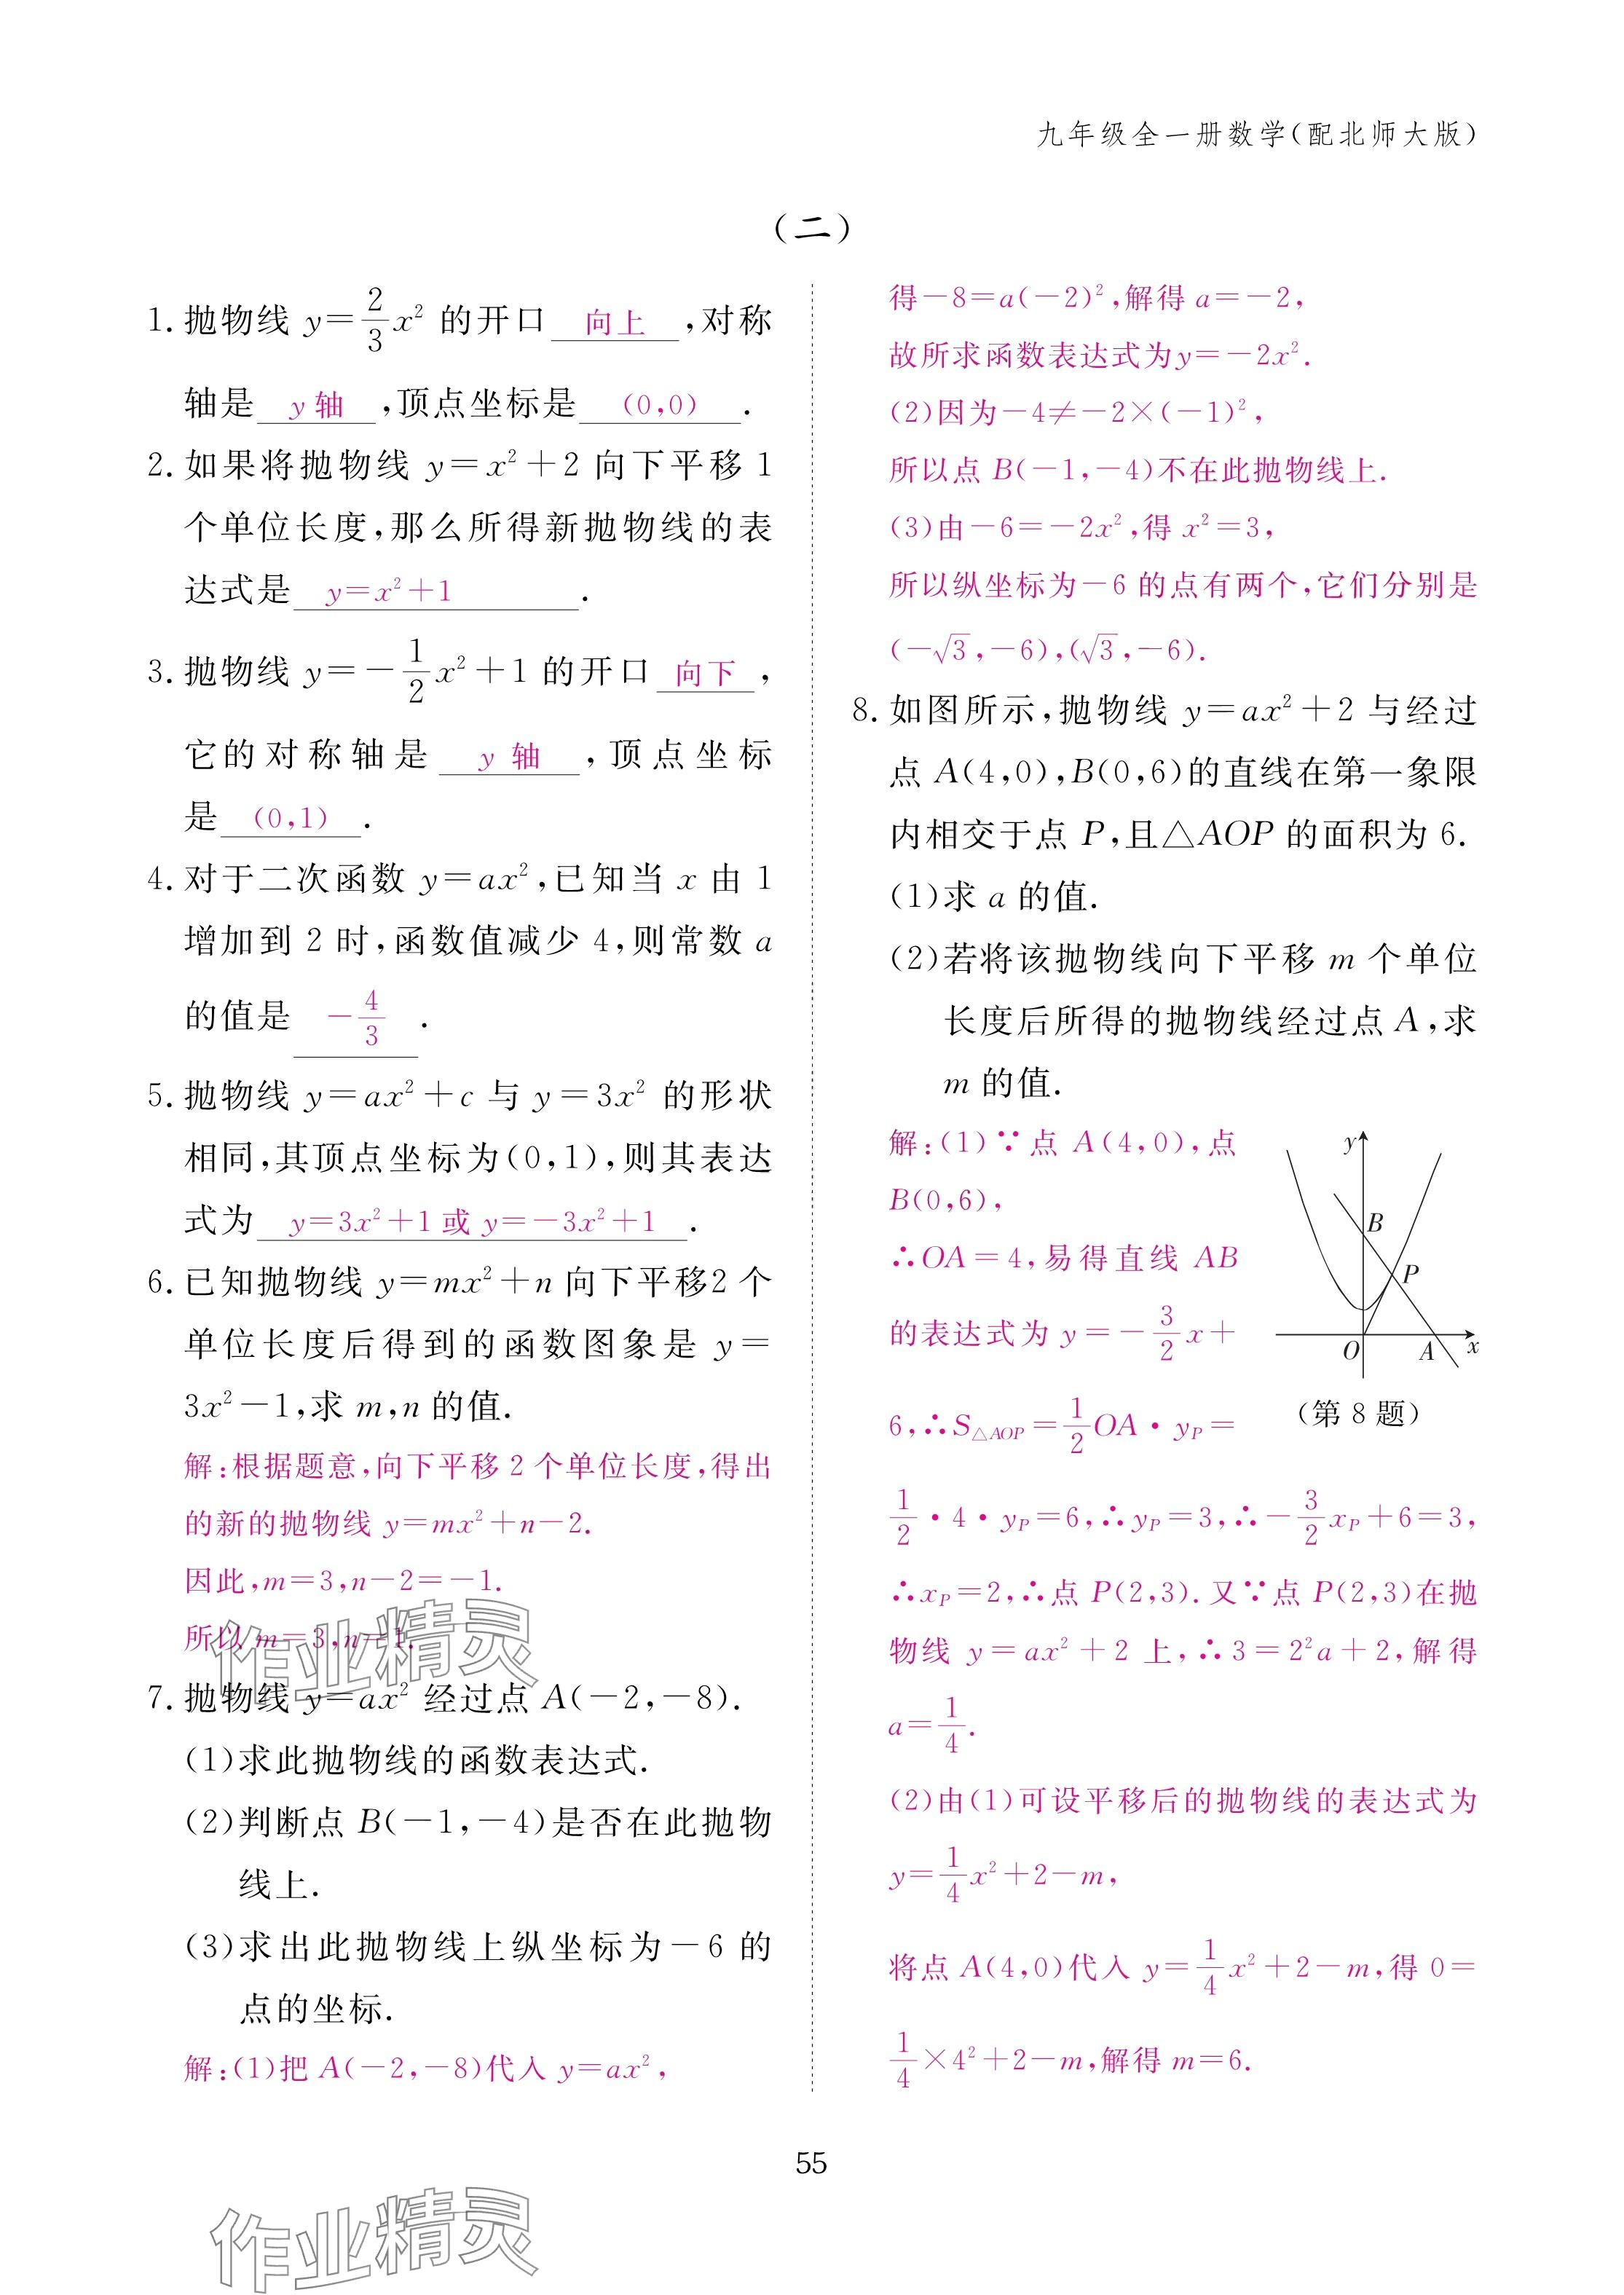 九年级全一册数学(配北师大版)
(二)
1. 抛物线 y=2/3x² 的开口 向上 ,对称
轴是 y 轴 ,顶点坐标是 (0,0) .
2. 如果将抛物线 y=x²+2 向下平移 1
个单位长度,那么所得新抛物线的表
达式是 y=x²+1 .
3. 抛物线 y=-1/2x²+1 的开口 向下 ,
它的对称轴是 y 轴 ,顶点坐标
是 (0,1) .
4. 对于二次函数 y=ax²,已知当 x 由 1
增加到 2 时,函数值减少 4,则常数 a
的值是 -4/3 .
5. 抛物线 y=ax²+c 与 y=3x² 的形状
相同,其顶点坐标为(0,1),则其表达
式为 y=3x²+1 或 y=-3x²+1 .
6. 已知抛物线 y=mx²+n 向下平移2 个
单位长度后得到的函数图象是 y=
3x²-1,求 m,n 的值.
解:根据题意,向下平移 2 个单位长度,得出
的新的抛物线 y=mx²+n-2.
因此,m=3,n-2=-1.
所以 m=3,n=1.
7. 抛物线 y=ax² 经过点 A(-2,-8).
(1)求此抛物线的函数表达式.
(2)判断点 B(-1,-4)是否在此抛物
线上.
(3)求出此抛物线上纵坐标为-6 的
点的坐标.
解:(1)把 A(-2,-8)代入 y=ax²,
得-8=a(-2)²,解得 a=-2,
故所求函数表达式为y=-2x².
(2)因为-4≠-2×(-1)²,
所以点 B(-1,-4)不在此抛物线上.
(3)由-6=-2x²,得 x²=3,
所以纵坐标为-6 的点有两个,它们分别是
(-√3,-6),(√3,-6).
8. 如图所示,抛物线 y=ax²+2 与经过
点 A(4,0),B(0,6)的直线在第一象限
内相交于点 P,且△AOP 的面积为 6.
(1)求 a 的值.
(2)若将该抛物线向下平移 m 个单位
长度后所得的抛物线经过点 A,求
m 的值.
解:(1)∵点 A(4,0),点
B(0,6),
∴OA=4,易得直线 AB
的表达式为 y=-3/2x+
6,∴S△AOP=1/2OA·yP=
1/2·4·yP=6,∴yP=3,∴-3/2xP+6=3,
∴xP=2,∴点 P(2,3).又∵点 P(2,3)在抛
物线 y=ax²+2 上,∴3=2²a+2,解得
a=1/4.
(2)由(1)可设平移后的抛物线的表达式为
y=1/4x²+2-m,
将点 A(4,0)代入 y=1/4x²+2-m,得 0=
1/4×4²+2-m,解得 m=6.
y
B
P
O
A
x
(第 8 题)
作业精灵
55
作业精灵